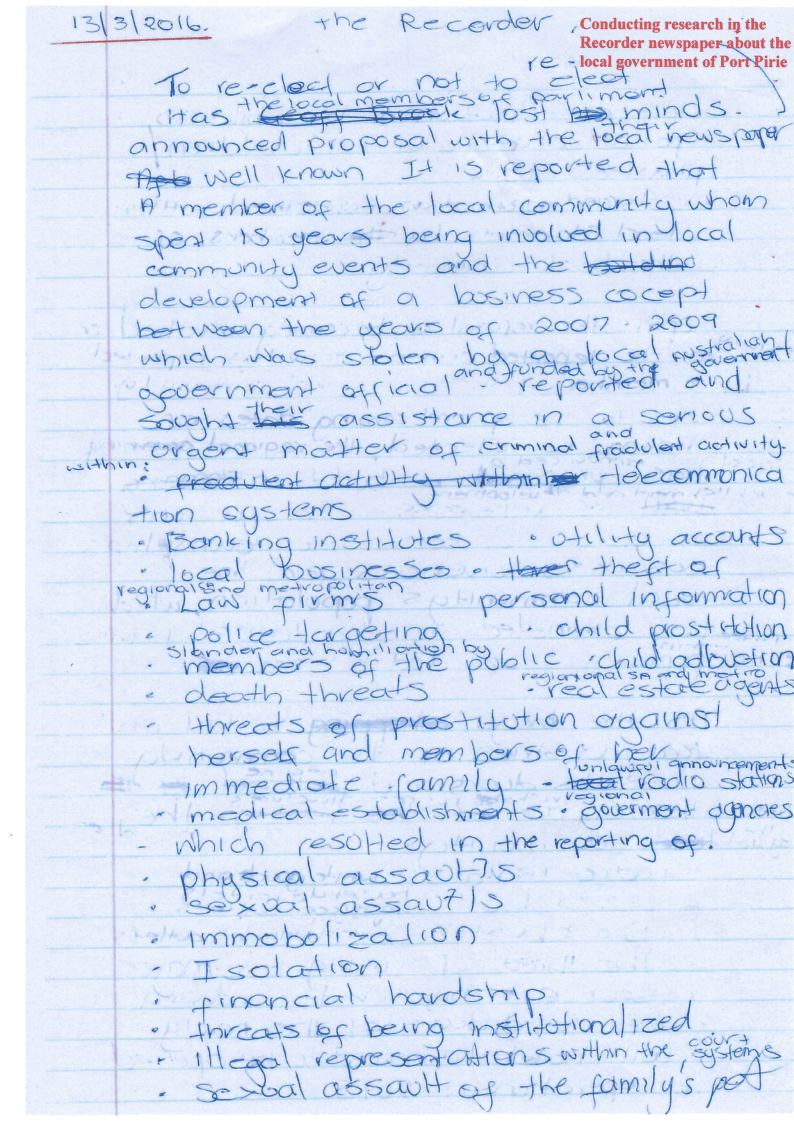 13/3/2016. the Recorder,
Conducting research in the
Recorder newspaper about the
local government of Port Pirie
re-
To re-elect or not to elect
the local members of parliment
Has Geoff Brock lost his minds.
their
announced proposal with the local newspaper
well known It is reported that
A member of the local community whom
spent 15 years being involved in local
community events and the
development of a business cocept
between the years of 2007 2009
which was stolen by a local Australian
and funded by the government
government official. reported and
their
sought his assistance in a serious
and
urgent matter of criminal fradulent activity.
within:
• fradulent activity within her telecommonica
tion systems
• Banking institutes • utility accants
• local businesses • theft of
regional and metropolitan
• Law firms personal information
• police targeting • child prostitution
slander and homiliation by
• members of the public • child adbuction
regional SA and metro
• death threats • real estate agents
- threats of prostitution against
herself and members of her
unlawful announcements
immediate family - local radio stations
regional
• medical establishments • goverment agencies
- which resolted in the reporting of.
• physical assaults
• sexual assaults
• immobolization
- Isolation
• financial hardship
• threats of being institutionalized
court
- illegal representations within the systems
• sexual assault of the family's pet